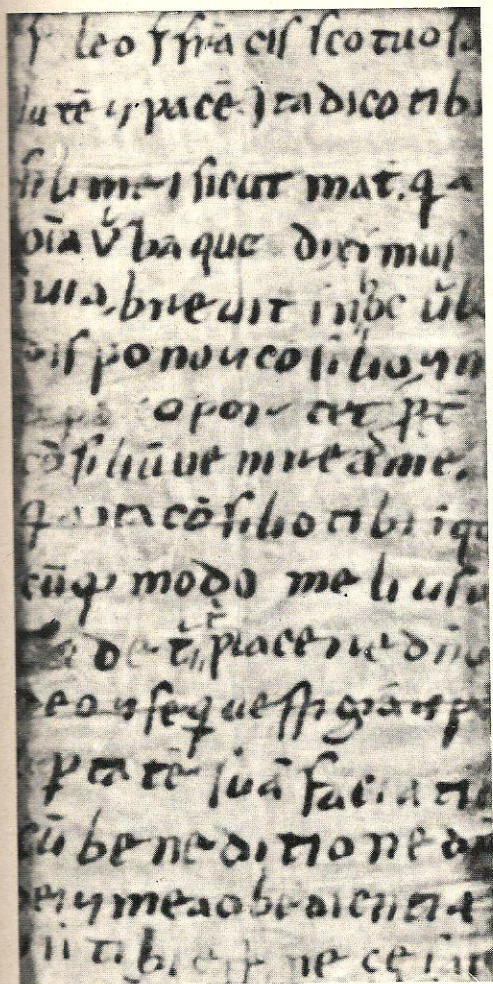 f leo f frācis ſco tuo ſa
lutē ⁊ pacē ita dico tibi
fili mei sicut mat. qa
oīa v̄ba que diximus
in uia, breuit in hoc ūb
dispono ⁊ cōsilio ⁊ n
opor tet p̄t
cōsiliū uenire ad me,
qa ita cōsilio tibi i q
cūq modo melius u
de t̄ placere dn̄o
deo ⁊ seque
ptatē suā faciatis
cū beneditione dn̄
dei ⁊ mea obedientia
tibi neceſ